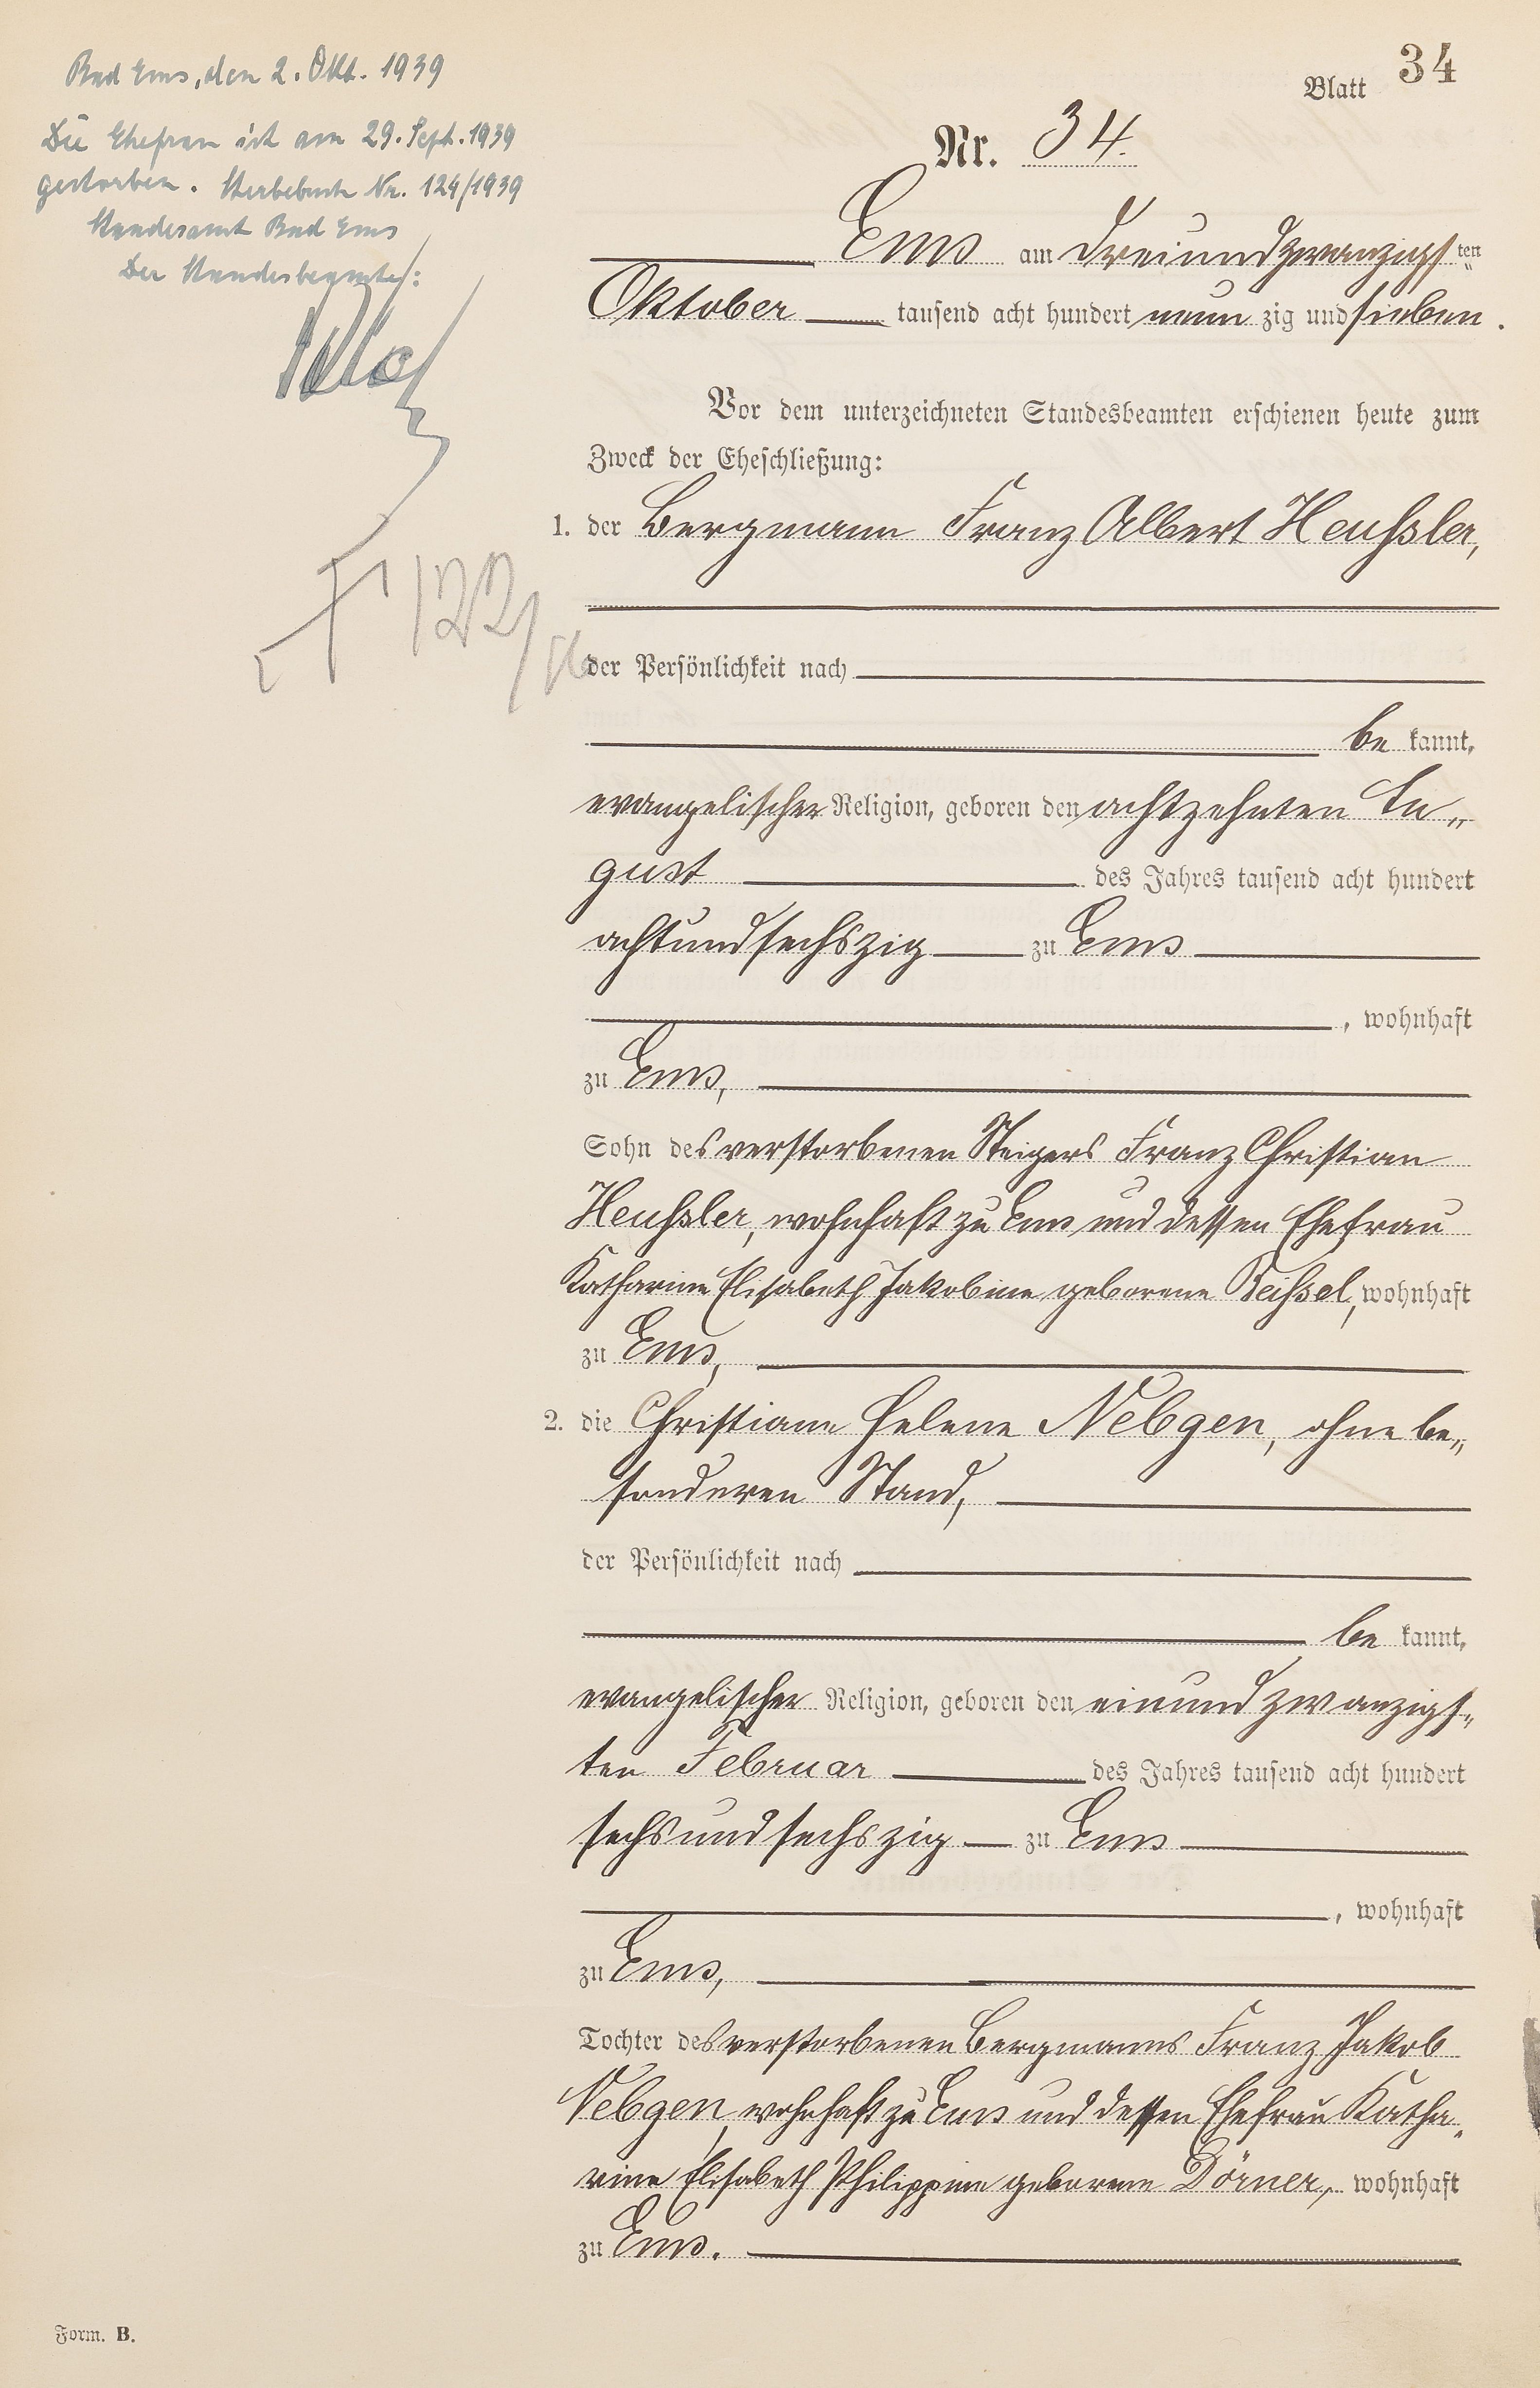 Bad Ems, den 2. Okt. 1939
Die Ehefrau ist am 29. Sept. 1939
gestorben. Sterbebuch Nr. 124/1939
Standesamt Bad Ems
Der Standesbeamte:
Blatt 34
Nr. 34.
Ems am dreiundzwanzigsten
Oktober tausend acht hundert neunzig und sieben.
Vor dem unterzeichneten Standesbeamten erschienen heute zum
Zweck der Eheschließung:
1. der Bergmann Franz Albert Heußler,
der Persönlichkeit nach
bekannt,
evangelischer Religion, geboren den achtzehnten Au„
gust des Jahres tausend acht hundert
achtundsechszig zu Ems
, wohnhaft
zu Ems,
Sohn des verstorbenen Steigers Franz Christian
Heußler, wohnhaft zu Ems und dessen Ehefrau
Katharine Elisabeth Jakobine geborene Beißel, wohnhaft
zu Ems,
2. die Christiane Helene Nebgen, ohne be„
sonderen Stand,
der Persönlichkeit nach
bekannt,
evangelischer Religion, geboren den einundzwanzigs„
ten Februar des Jahres tausend acht hundert
sechsundsechszig zu Ems
, wohnhaft
zu Ems,
Tochter des verstorbenen Bergmanns Franz Jakob
Nebgen, wohnhaft zu Ems und dessen Ehefrau Katha„
rine Elisabeth Philippine geborene Dörner, wohnhaft
zu Ems.
Form. B.